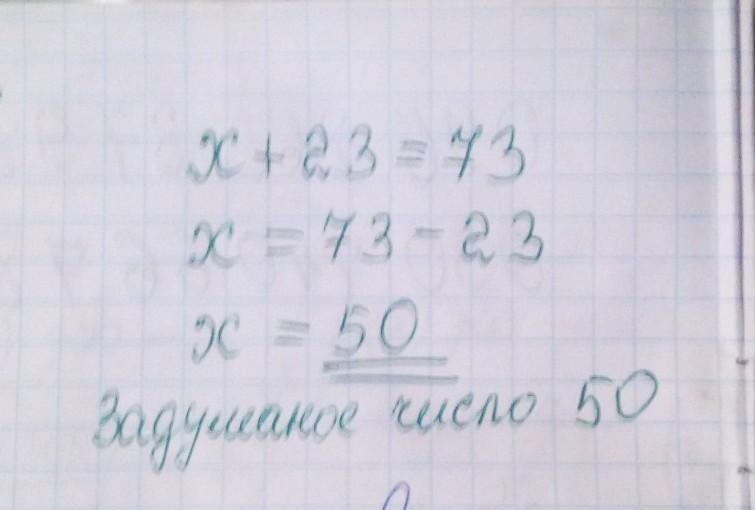 x + 23 = 73
x = 73 - 23
x = 50
Задуманое число 50